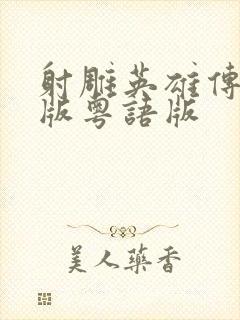 射雕英雄傳
版粵語版
美人藥香